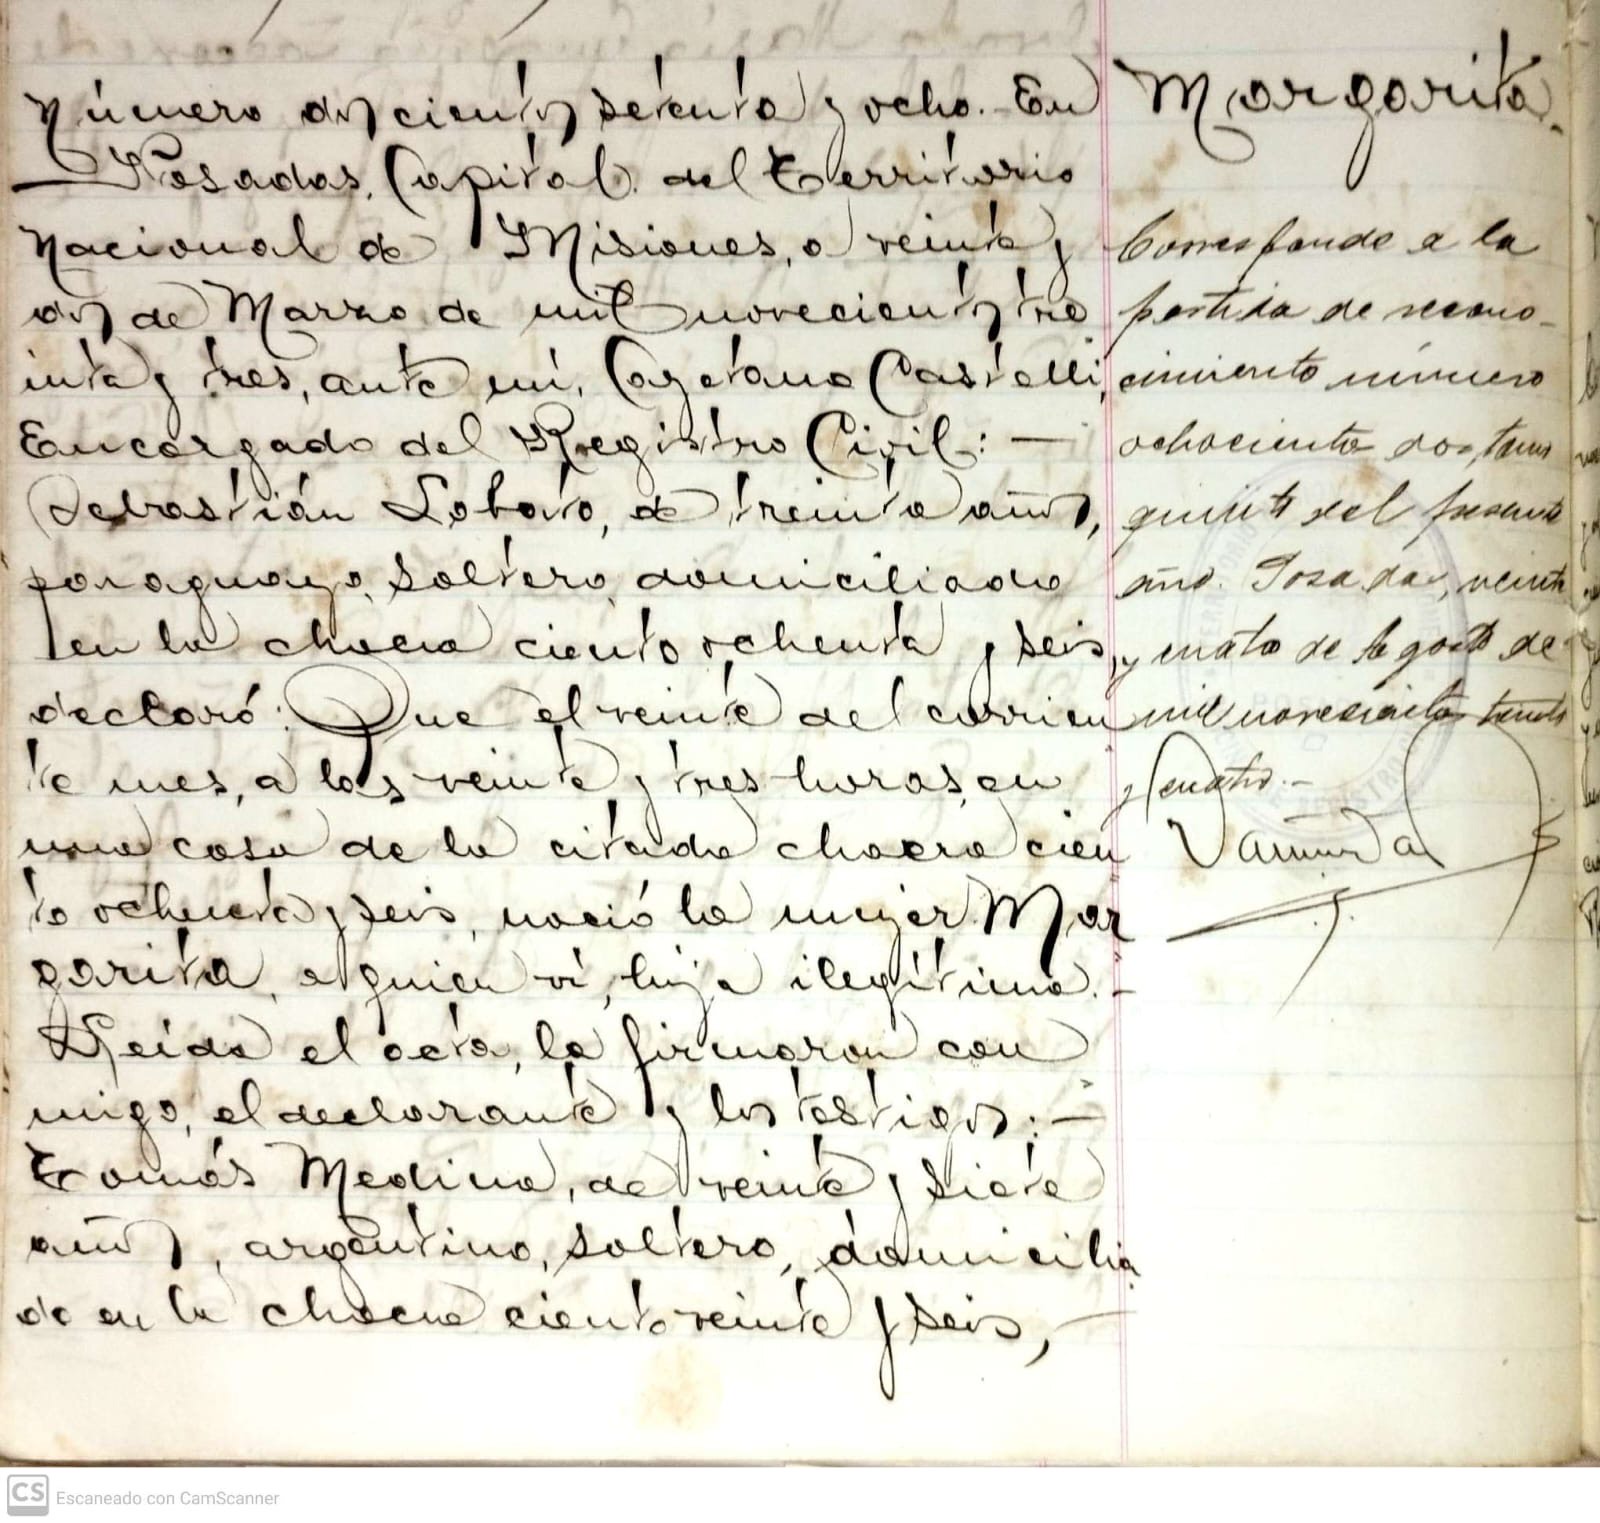 Número doscientos setenta y ocho.- En
Posadas, Capital del Territorio
Nacional de Misiones, a veinte y
dos de Marzo de mil novecientos tre
inta y tres, ante mí, Cayetano Castelli,
Encargado del Registro Civil: —
Sebastián Lobato, de treinta años,
paraguayo, soltero, domiciliado
en la chacra ciento ochenta y seis,
declaró: Que el veinte del corrien
te mes, a las veinte y tres horas, en
una casa de la citada chacra cien
to ochenta y seis, nació la mujer Mar
garita, a quien ví, hija ilegítima.-
Leída el acta, la firmaron con
migo, el declarante y los testigos: —
Tomás Medina, de veinte y siete
años, argentino, soltero, domicilia
do en la chacra ciento veinte y seis, —
Margarita.
Corresponde a la
partida de recono-
cimiento número
ochocientos dos, tomo
quinto del presente
año. Posadas, veinte
y cuatro de Agosto de
mil novecientos treinta
y cuatro.-
CS Escaneado con CamScanner